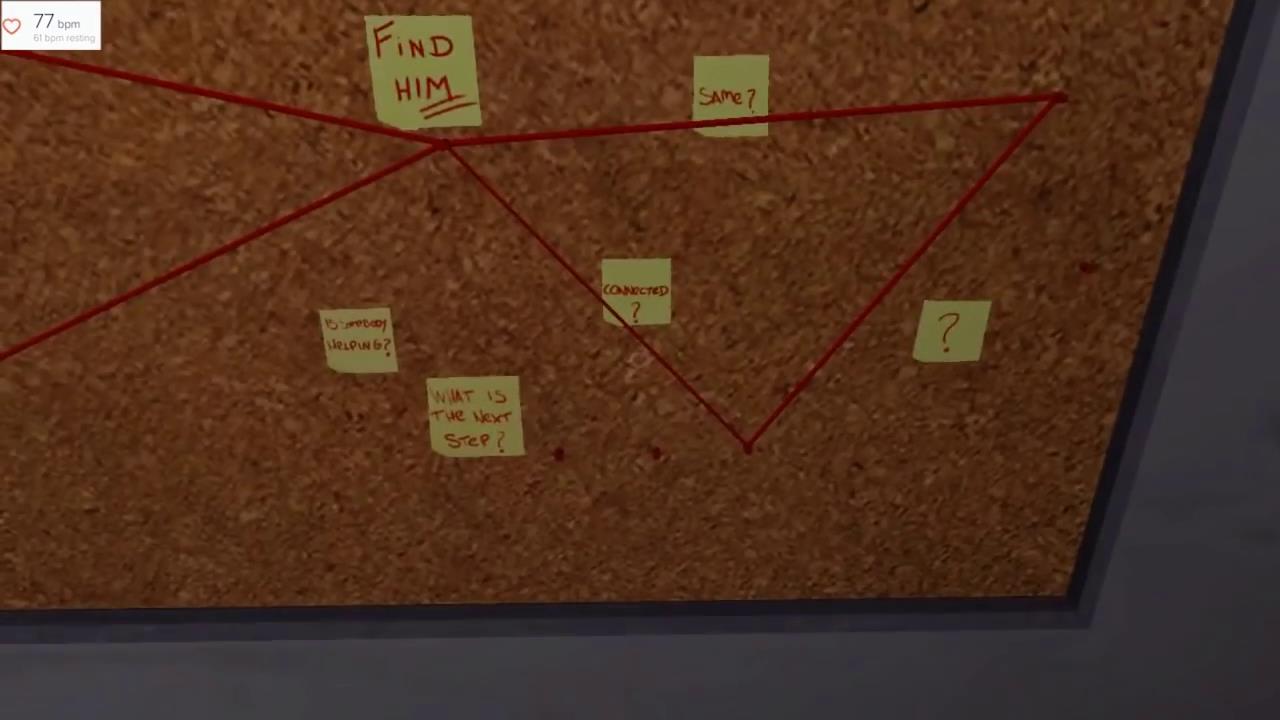 77 bpm
61 bpm resting
FiND
HIM
SAMe?
CONNECTED
?
IS SOMEBODY
HELPING?
?
WHAT IS
THE NEXT
STEP?